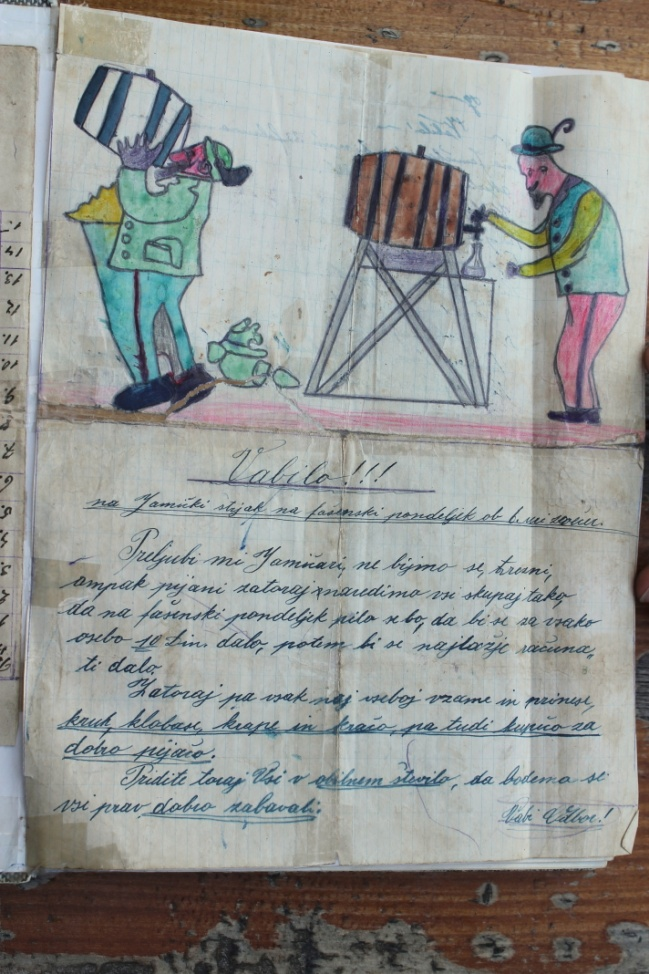 Vabilo!!!
na Jamički stijak na fašenski pondeljek ob 6. uri zvečer.
Preljubi mi Jamičari, ne bijmo se, trezni,
ampak pijani zatoraj naredimo vsi skupaj tako,
da na fašenski pondeljek pilo se bo, da bi se za vsako
osebo 10 Din. dalo, potem bi se najlažje računa„
ti dalo.
Zatoraj pa vsak naj vseboj vzame in prinese,
kruh, klobase, krape in kračo, pa tudi kupico za
dobro pijačo.
Pridite toraj Vsi v obilnem število, da bodemo se
vsi prav dobro zabavali.
Vabi Odbor!
1.
14
13.
12
11.
10.
9
8
7.
6.
5.
4.
3.
2